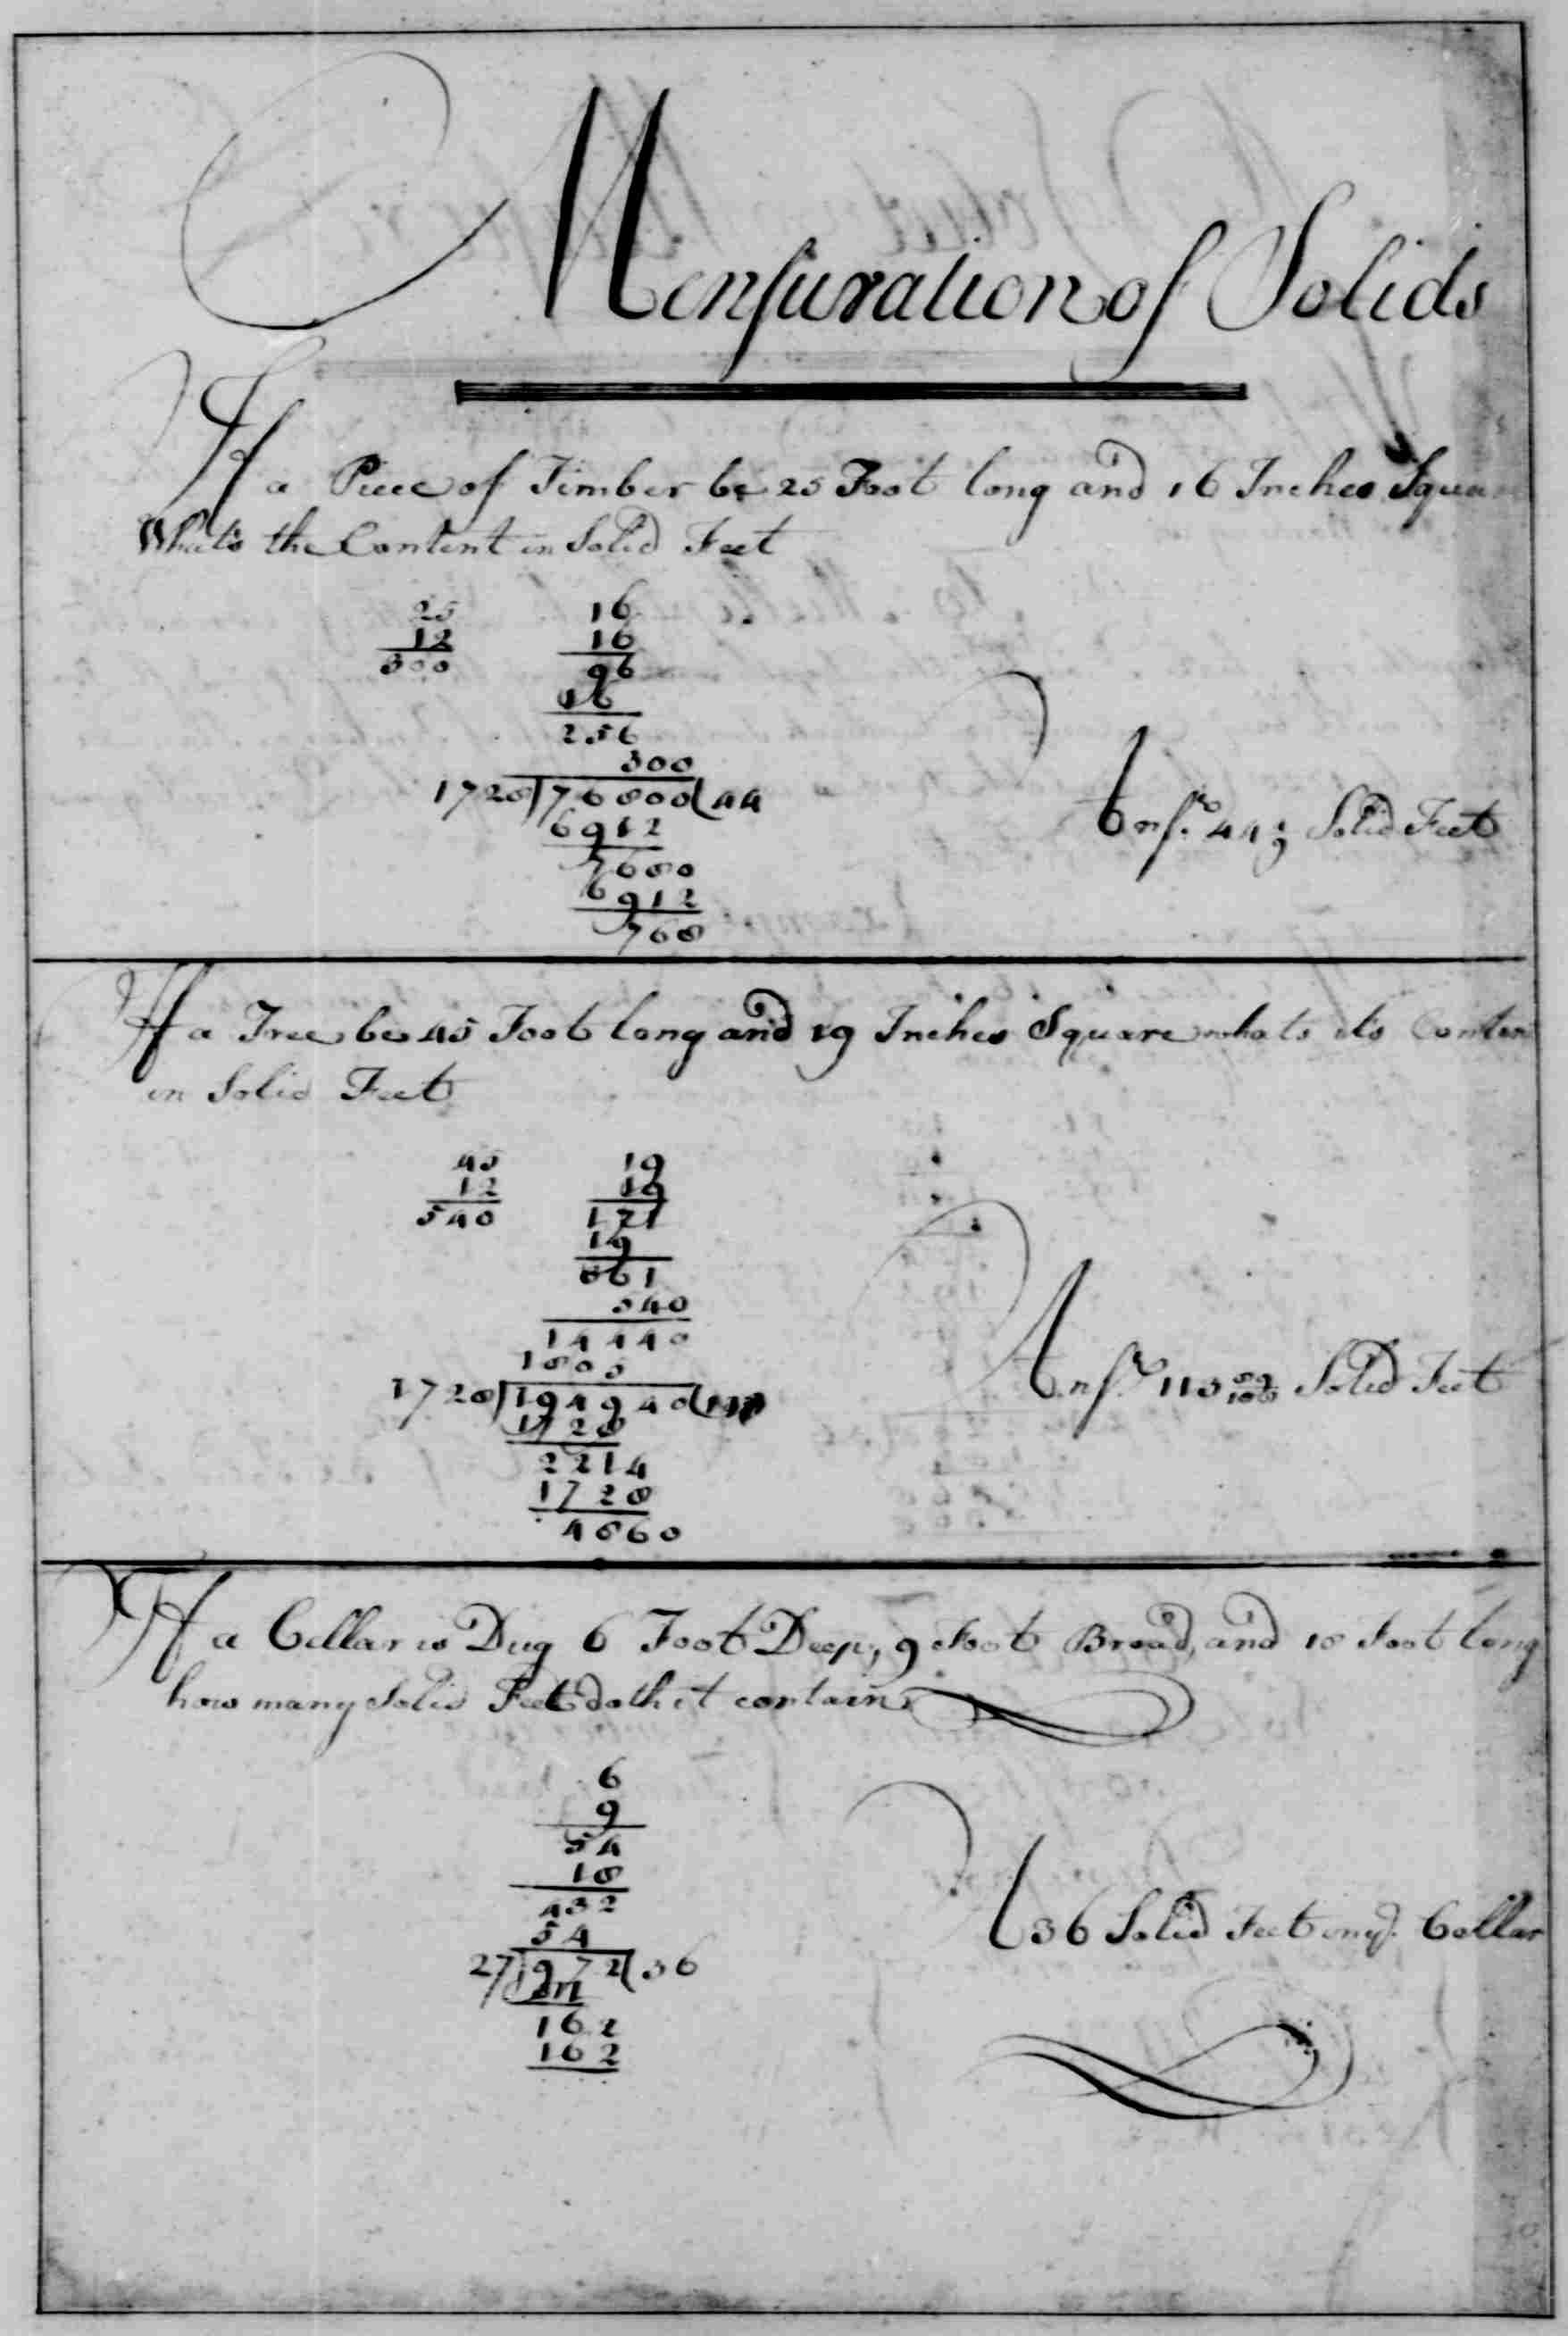 Mensuration of Solids
If a Piece of Timber be 25 Foot long and 16 Inches Square
What's the Content in Solid Feet
25 16
12 16
300 96
16
256
300
1728)76800(44
6912
7680
6912
768
Answr 44 4/9 Solid Feet
If a Tree be 45 Foot long and 19 Inches Square whats its Conten
in Solid Feet
45 19
12 19
540 171
19
361
540
14440
1805
1728)194940(
1728
2214
1728
4860
Answr 11 Solid Feet
If a Cellar is Dug 6 Foot Deep, 9 Foot Broad, and 18 Foot long
how many Solid Feet doth it contain
6
9
54
18
432
54
27)972(36
81
162
162
36 Solid Feet in ye. Cellar